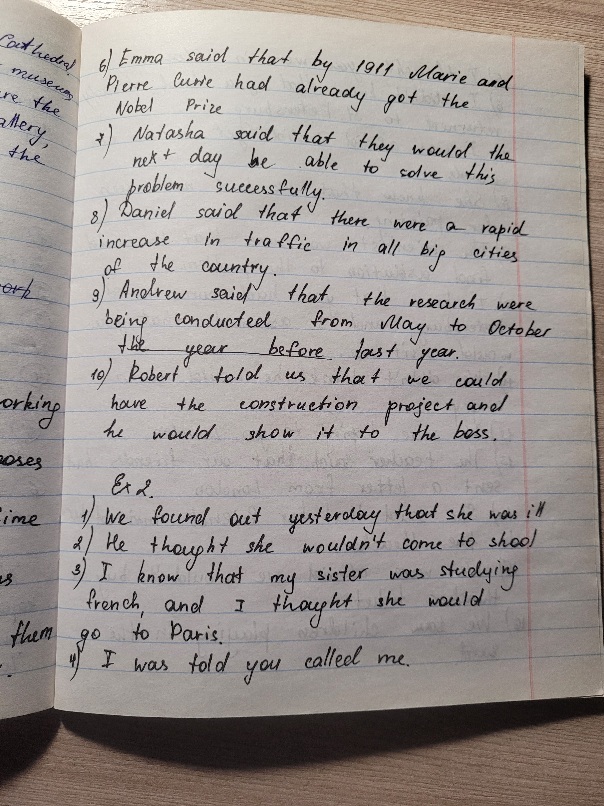 Cathedral,
museums
re the
allery,
the
ork
orking
oses
ime
as
them
6) Emma said that by 1911 Marie and
Pierre Curie had already got the
Nobel Prize
7) Natasha said that they would the
next day be able to solve this
problem successfully.
8) Daniel said that there were a rapid
increase in traffic in all big cities
of the country.
9) Andrew said that the research were
being conducted from May to October
the year before last year.
10) Robert told us that we could
have the construction project and
he would show it to the boss.
Ex 2.
1) We found out yesterday that she was ill
2) He thought she wouldn't come to shool
3) I know that my sister was studying
french, and I thought she would
go to Paris.
4) I was told you called me.